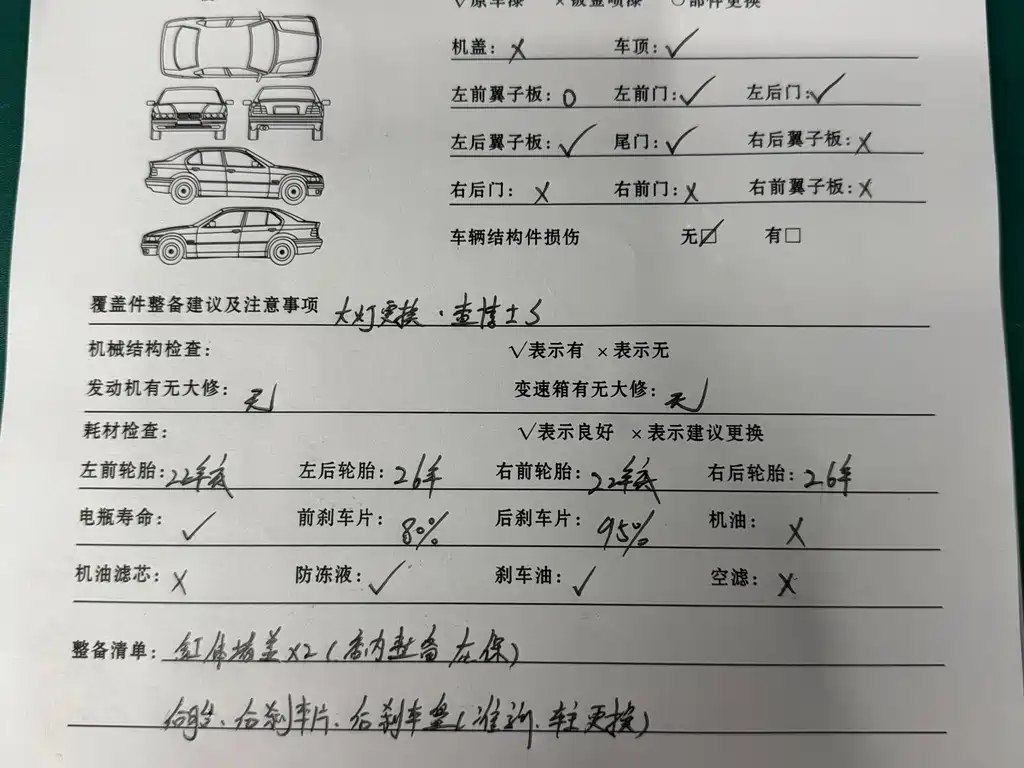 √原车漆 ×钣金喷漆 ○部件更换
机盖：× 车顶：√
左前翼子板：○ 左前门：√ 左后门：√
左后翼子板：√ 尾门：√ 右后翼子板：×
右后门：× 右前门：× 右前翼子板：×
车辆结构件损伤 无☑ 有□
覆盖件整备建议及注意事项 大灯更换·查博士S
机械结构检查： √表示有 ×表示无
发动机有无大修：无 变速箱有无大修：无
耗材检查： √表示良好 ×表示建议更换
左前轮胎：22年底 左后轮胎：26年 右前轮胎：22年底 右后轮胎：26年
电瓶寿命：√ 前刹车片：80% 后刹车片：95% 机油：×
机油滤芯：× 防冻液：√ 刹车油：√ 空滤：×
整备清单：缸体堵盖×2（店内整备 在保）
后胎、后刹车片、后刹车盘（准新、车主更换）